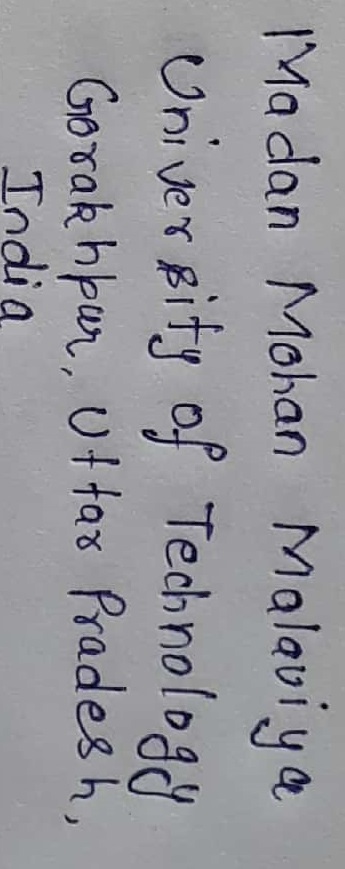 Madan Mohan Malaviya
University of Technology
Gorakhpur, Uttar Pradesh,
India